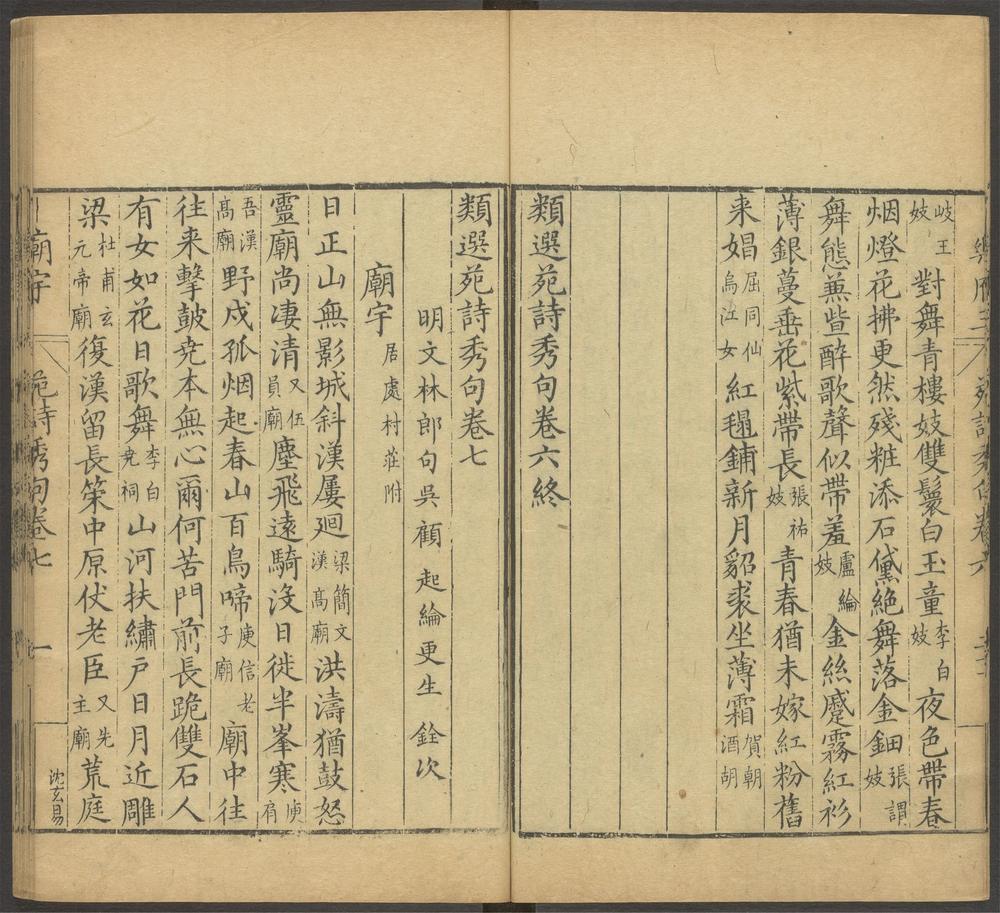 岐王妓 對舞青樓妓雙鬟白玉童 李白妓 夜色帶春
烟燈花拂更然殘粧添石黛絶舞落金鈿 張謂妓
舞態兼些醉歌聲似帶羞 盧綸妓 金絲蹙霧紅衫
薄銀蔓垂花紫帶長 張祐妓 青春猶未嫁紅粉舊
来娼 屈同仙烏江女 紅毾鋪新月貂裘坐薄霜 賀朝酒胡
類選苑詩秀句卷六終
類選苑詩秀句卷七
明文林郎句吳顧起綸更生銓次
廟宇 居處村莊附
日正山無影城斜漢屢迴 梁簡文漢高廟 洪濤猶鼓怒
靈廟尚凄清 又伍員廟 塵飛遠騎沒日徙半峯寒 庾肩
吾漢高廟 野戍孤烟起春山百鳥啼 庾信老子廟 廟中往
往来擊皷尭本無心爾何苦門前長跪雙石人
有女如花日歌舞 李白尭祠 山河扶繡戶日月近雕
梁 杜甫玄元帝廟 復漢留長策中原仗老臣 又先主廟 荒庭
廟宇
苑詩秀句卷七
一
沈玄易